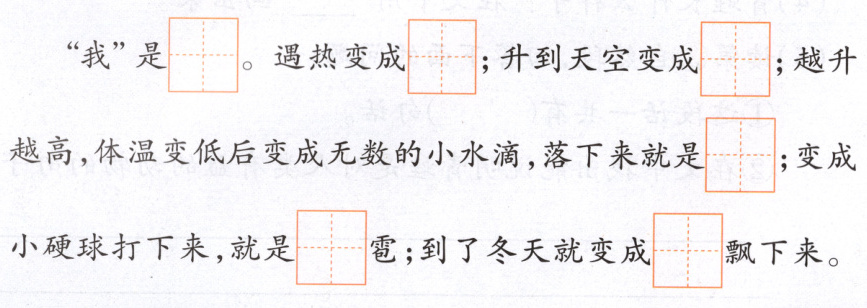 “我”是 。遇热变成 ;升到天空变成 ;越升
越高,体温变低后变成无数的小水滴,落下来就是 ;变成
小硬球打下来,就是 雹;到了冬天就变成 飘下来。